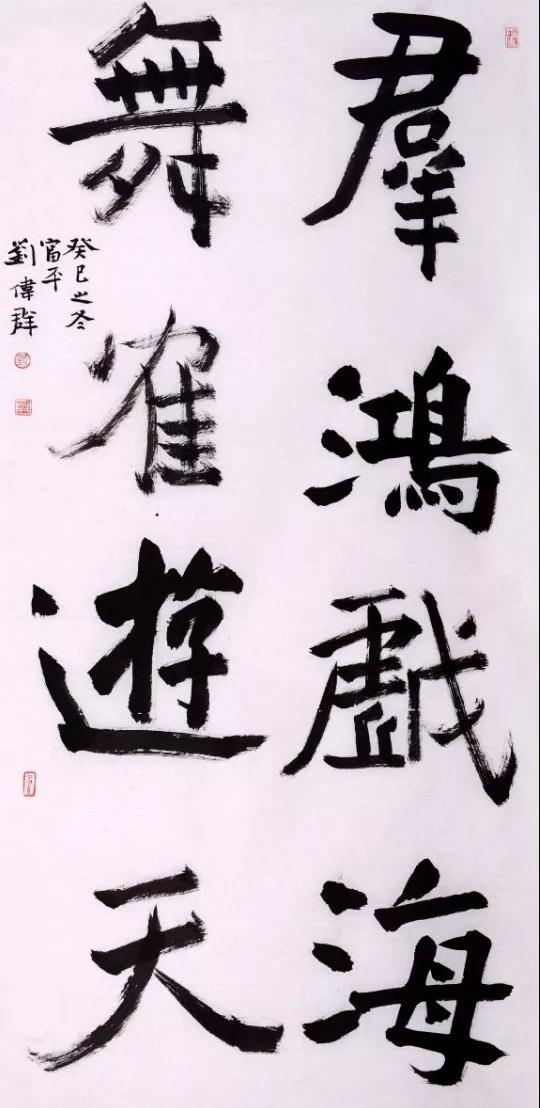 羣鴻戲海
舞寉遊天
癸巳之冬
富平
劉偉群